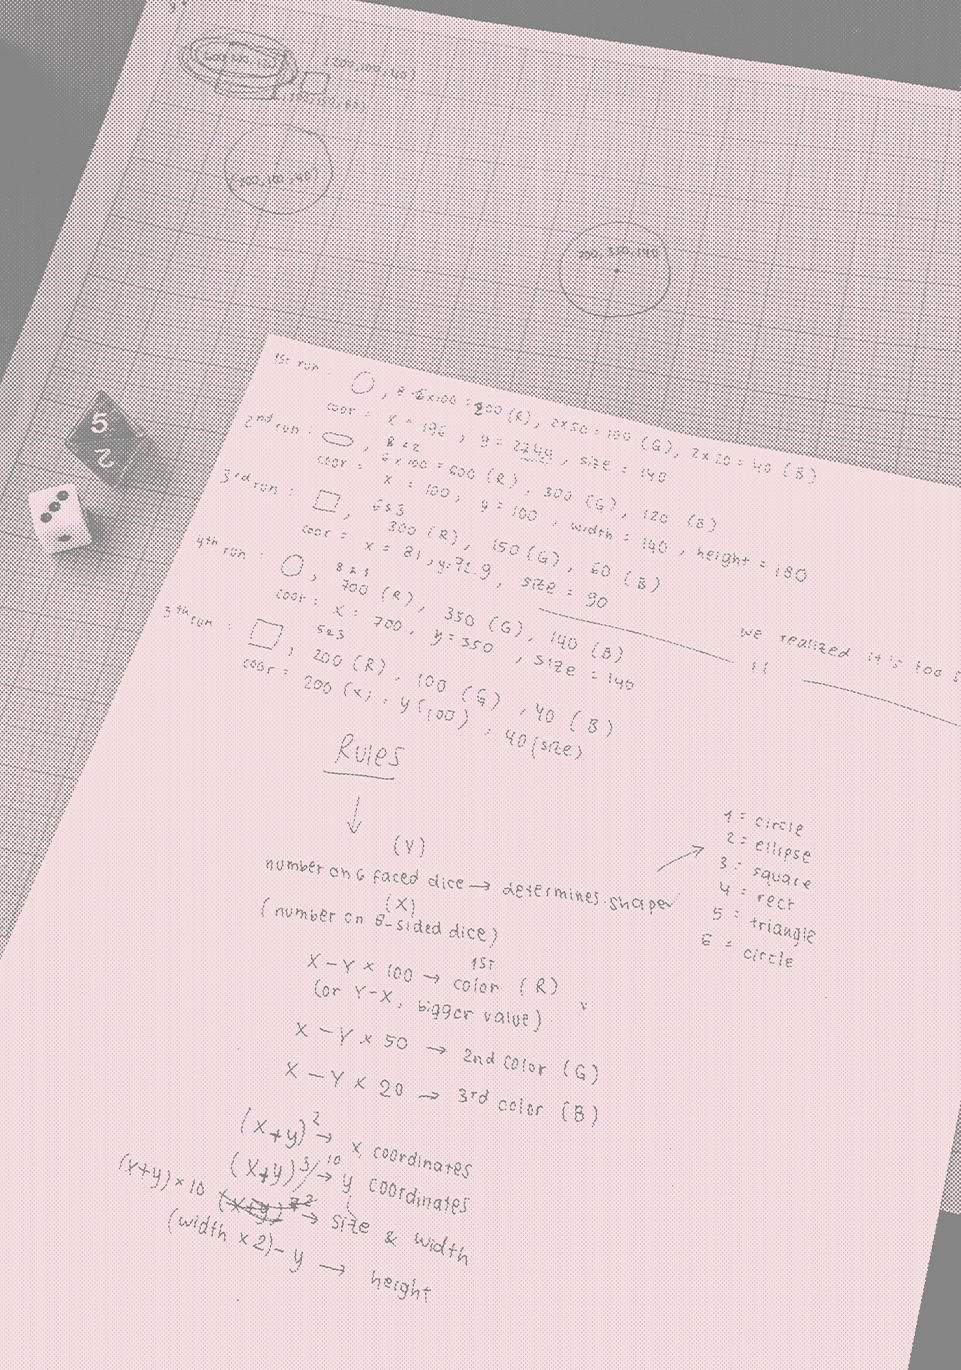 (200,100,40)
(200,100,40)
700, 350, 140
1st run: , 8-6x100 = 200 (R), 2x50=100 (G), 2x20=40 (B)
coor = x = 196, y = 2744, size = 140
2nd run: , 8 & 2
6x100=600 (R), 300 (G), 120 (B)
coor = x = 100, y = 100, width = 140, height = 180
3rd run: , 6 & 3
300 (R), 150 (G), 60 (B)
coor = x = 81, y = 72.9, size = 90
4th run: , 8 & 1
700 (R), 350 (G), 140 (B)
coor = x = 700, y = 350, size = 140
we realized it is too
5th run: , 5 & 3
200 (R), 100 (G), 40 (B)
coor = 200 (x), y (100), 40 (size)
Rules
(Y)
number on 6 faced dice → determines shape
1 = circle
2 = ellipse
3 = square
4 = rect
5 = triangle
6 = circle
(X)
(number on 8-sided dice)
X-Y x 100 → 1ST color (R)
(or Y-X, bigger value)
X - Y x 50 → 2nd color (G)
X - Y x 20 → 3rd color (B)
(x+y)² → x coordinates
(x+y)³/10 → y coordinates
(x+y) x 10 → size & width
(width x 2) - y → height